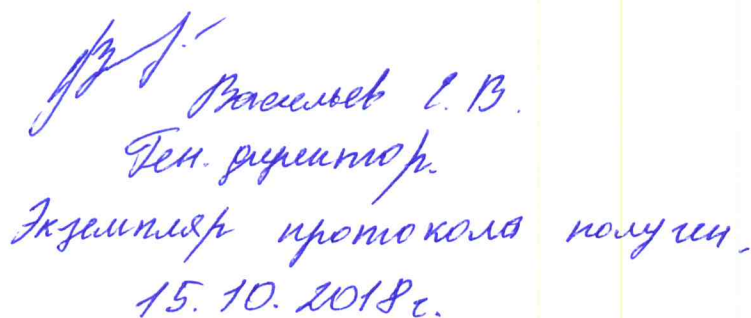 Васильев С. В.
Ген. директор.
Экземпляр протокола получен.
15. 10. 2018 г.